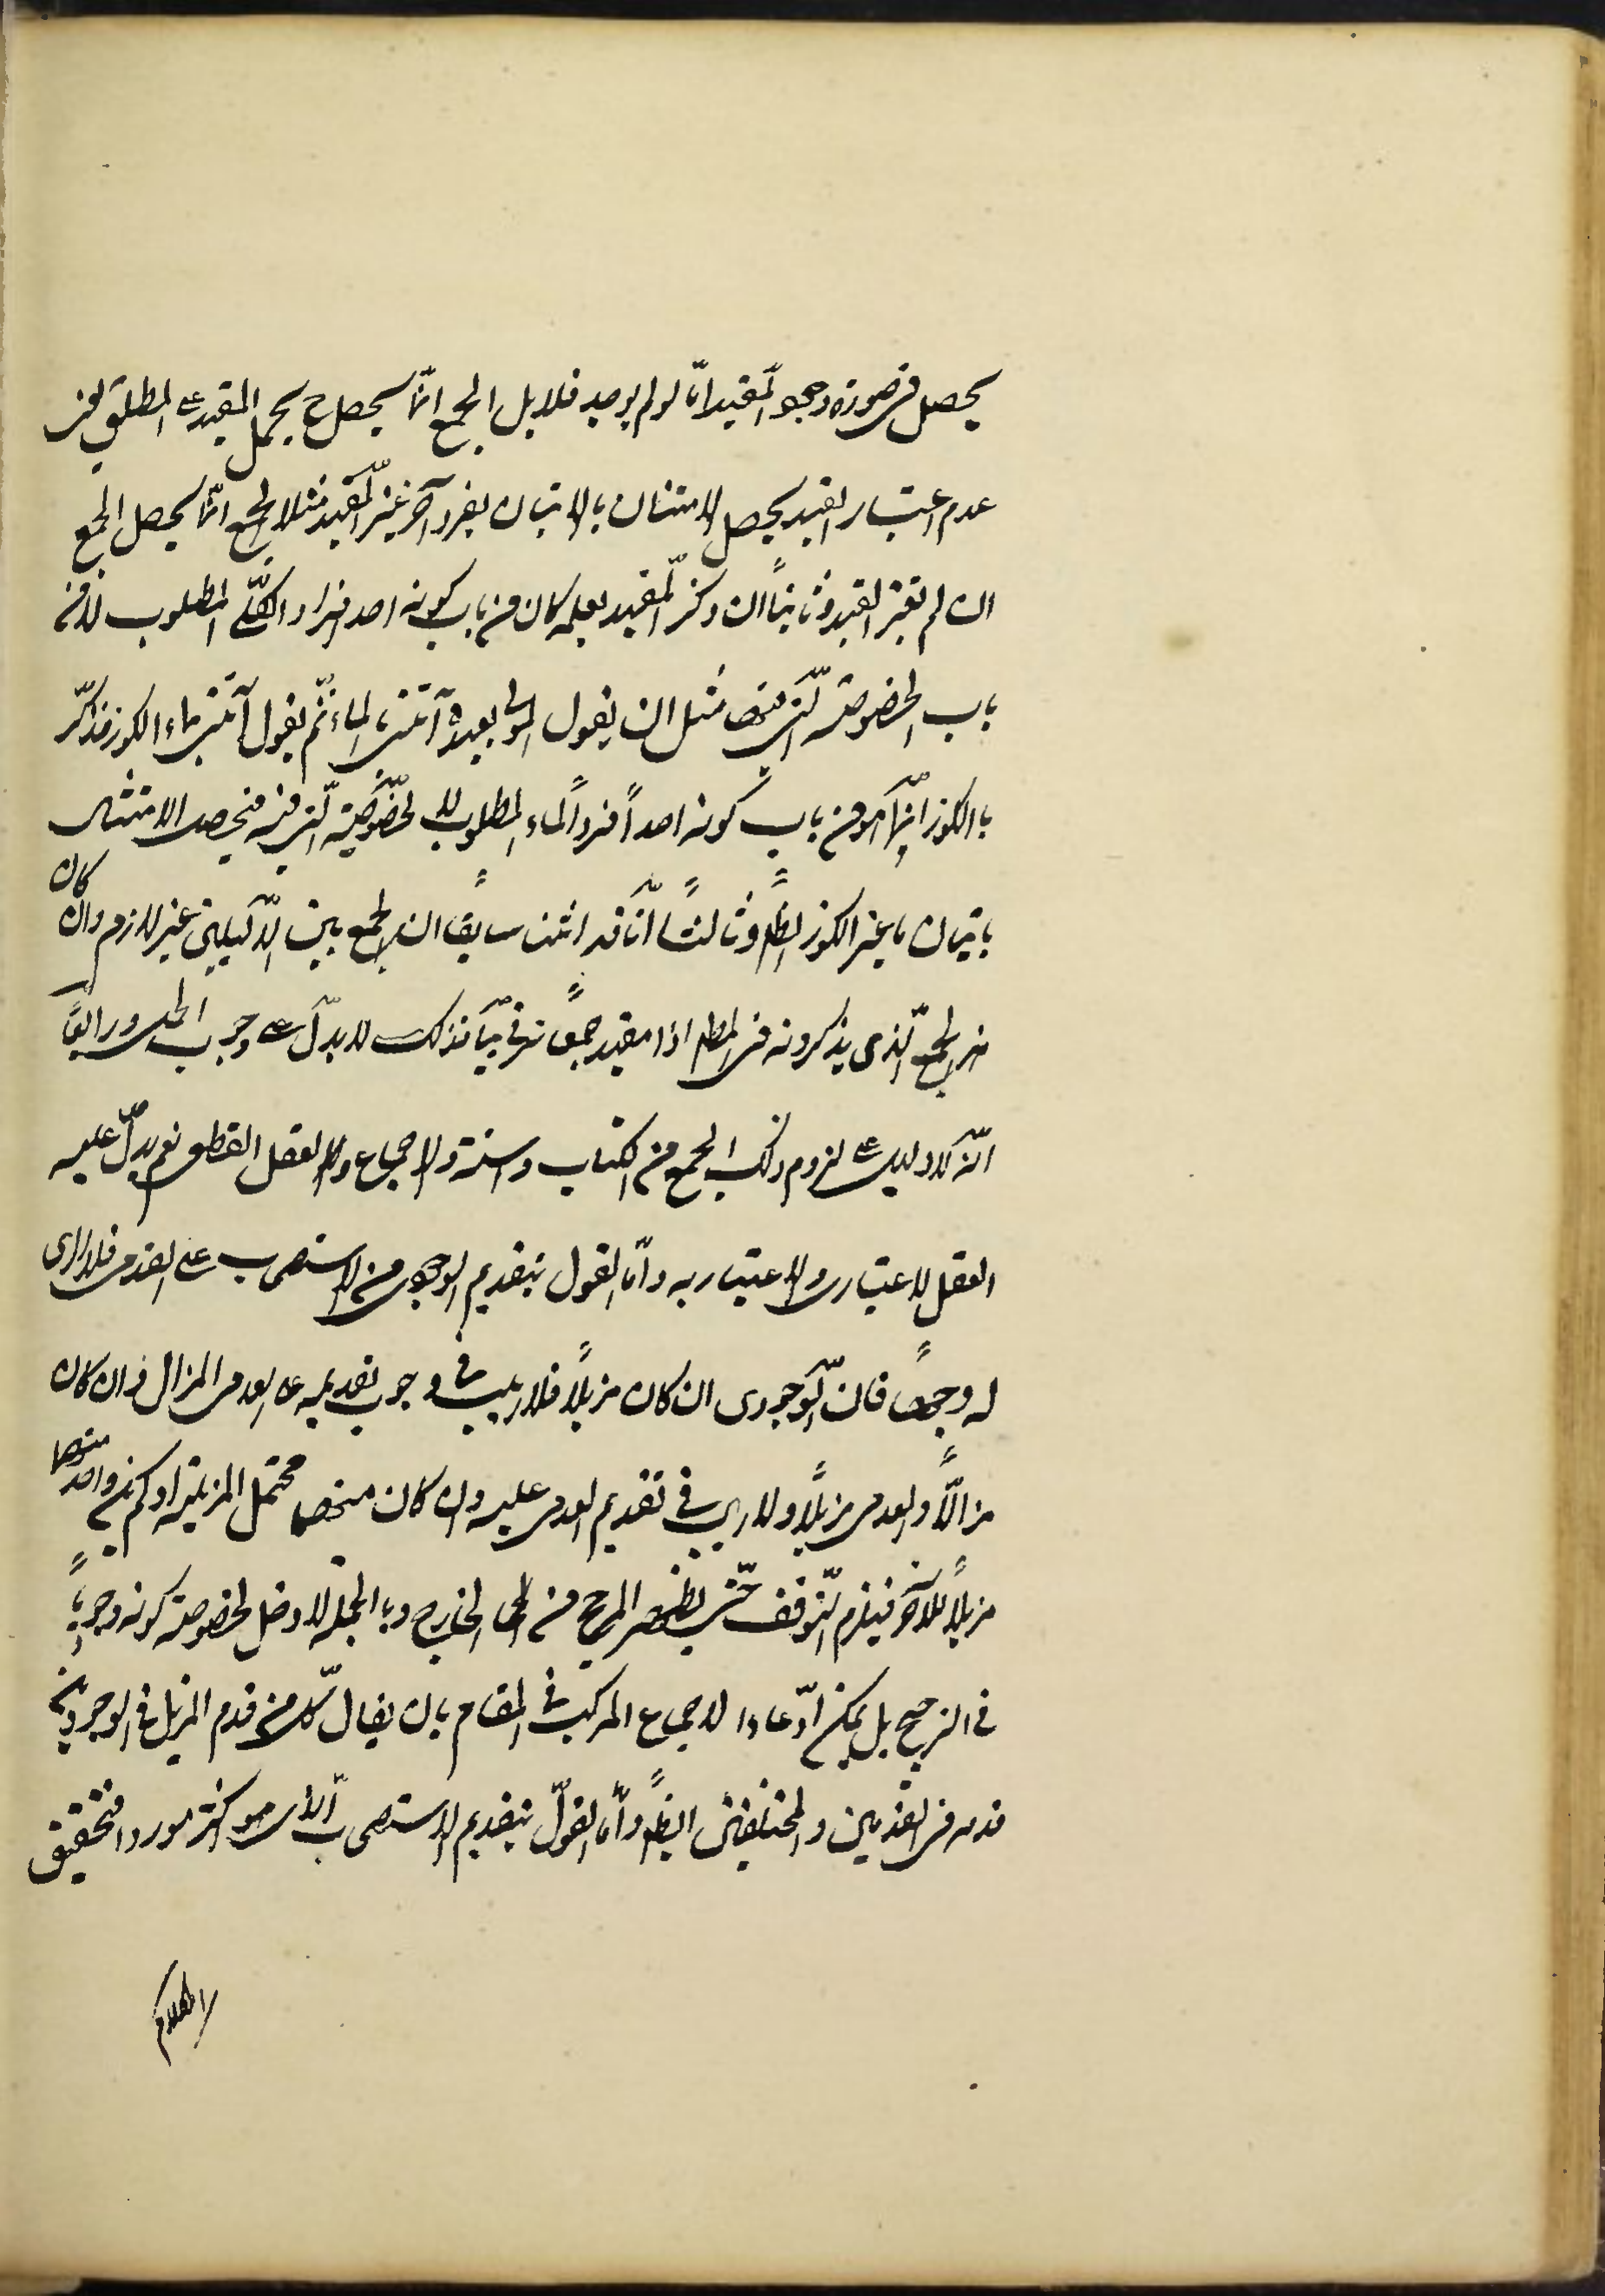 يحصل فى صورة وجود المقيد امّا لو لم يوجد فلا بل الجمع انّما يحصل ح بحمل المقيد على المطلق ففى
عدم اعتبار القيد يحصل الامتثال بالاتيان بفرد آخر غير المقيد مثلا الجمع انّما يحصل الجمع
ان لم يعتبر القيد وثانياً ان ذكر المقيد لعله كان من باب كونه احد افراد الكلّى المطلوب لا من
باب الخصوصيّة الّتى فيها مثل ان يقول المولى لعبده آتنى بالماء ثمّ يقول آتنى بماء الكوز فذكر
بالكوز انّما هو من باب كونه احداً فرد الماء المطلوب لا لخصوصيّة الّتى فيه فيحصل الامتثال
باتيان ماء غير الكوز ايضاً وثالثاً انّا قد اثبتنا سابقا ان الجمع بين الدّليلين غير لازم وان كان
هذا الجمع الّذى يذكرونه فى المطلق اذا مقيد جمعاً عرفيّاً فذلك لا يدلّ على وجوب الجمع ورابعاً
انّه لا دليل على لزوم ذلك الجمع من الكتاب والسنة والاجماع ولا العقل القطعى نعم يدلّ عليه
العقل الاعتبارى ولا اعتبار به وامّا القول بتقديم الوجودى من الاستصحاب على العدمى فلا ارى
له وجهاً فان الوجودى ان كان مزيلاً فلا ريب فى وجوب تقديمه على العدمى المزال وان كان
مزالاً والعدمى مزيلاً ولا ريب فى تقديم العدمى عليه وان كان منهما محتمل المزيلية او لم يكن واحد منهما
مزيلاً للآخر فيلزم التّوقف حتّى يظهر المرجح من الخارج وبالجملة لا دخل لخصوصيّة كونه وجوديّاً
فى الترجيح بل يمكن ادّعاء الاجماع المركب فى المقام بان يقال كلّ من قدم المزيل فى الوجوديين
قدمه فى العدميين والمختلفين ايضاً وامّا القول بتقديم الاستصحاب الّذى هو اكثر موردا فتحقيق
الكلام